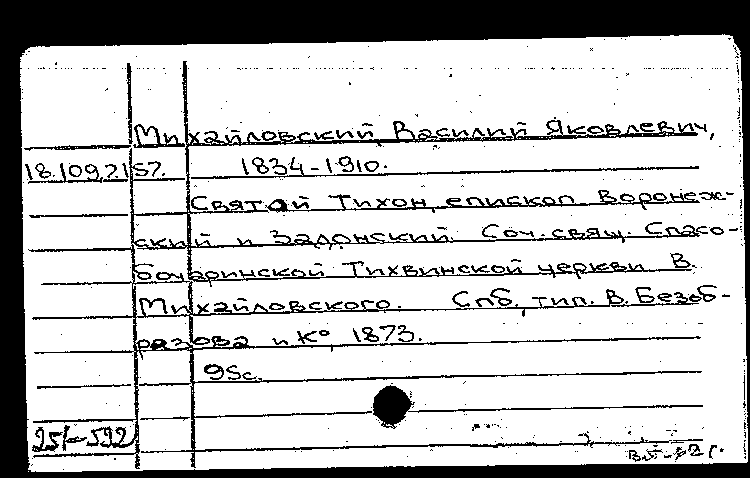 Михайловский, Василий Яковлевич,
18.109.21 57. 1834-1910.
Святой Тихон, епископ Воронеж-
ский и Задонский. Соч. свящ. Спасо-
бочаринской Тихвинской церкви В.
Михайловского. Спб, тип. В. Безоб-
разова и К°, 1873.
95с.
251-592